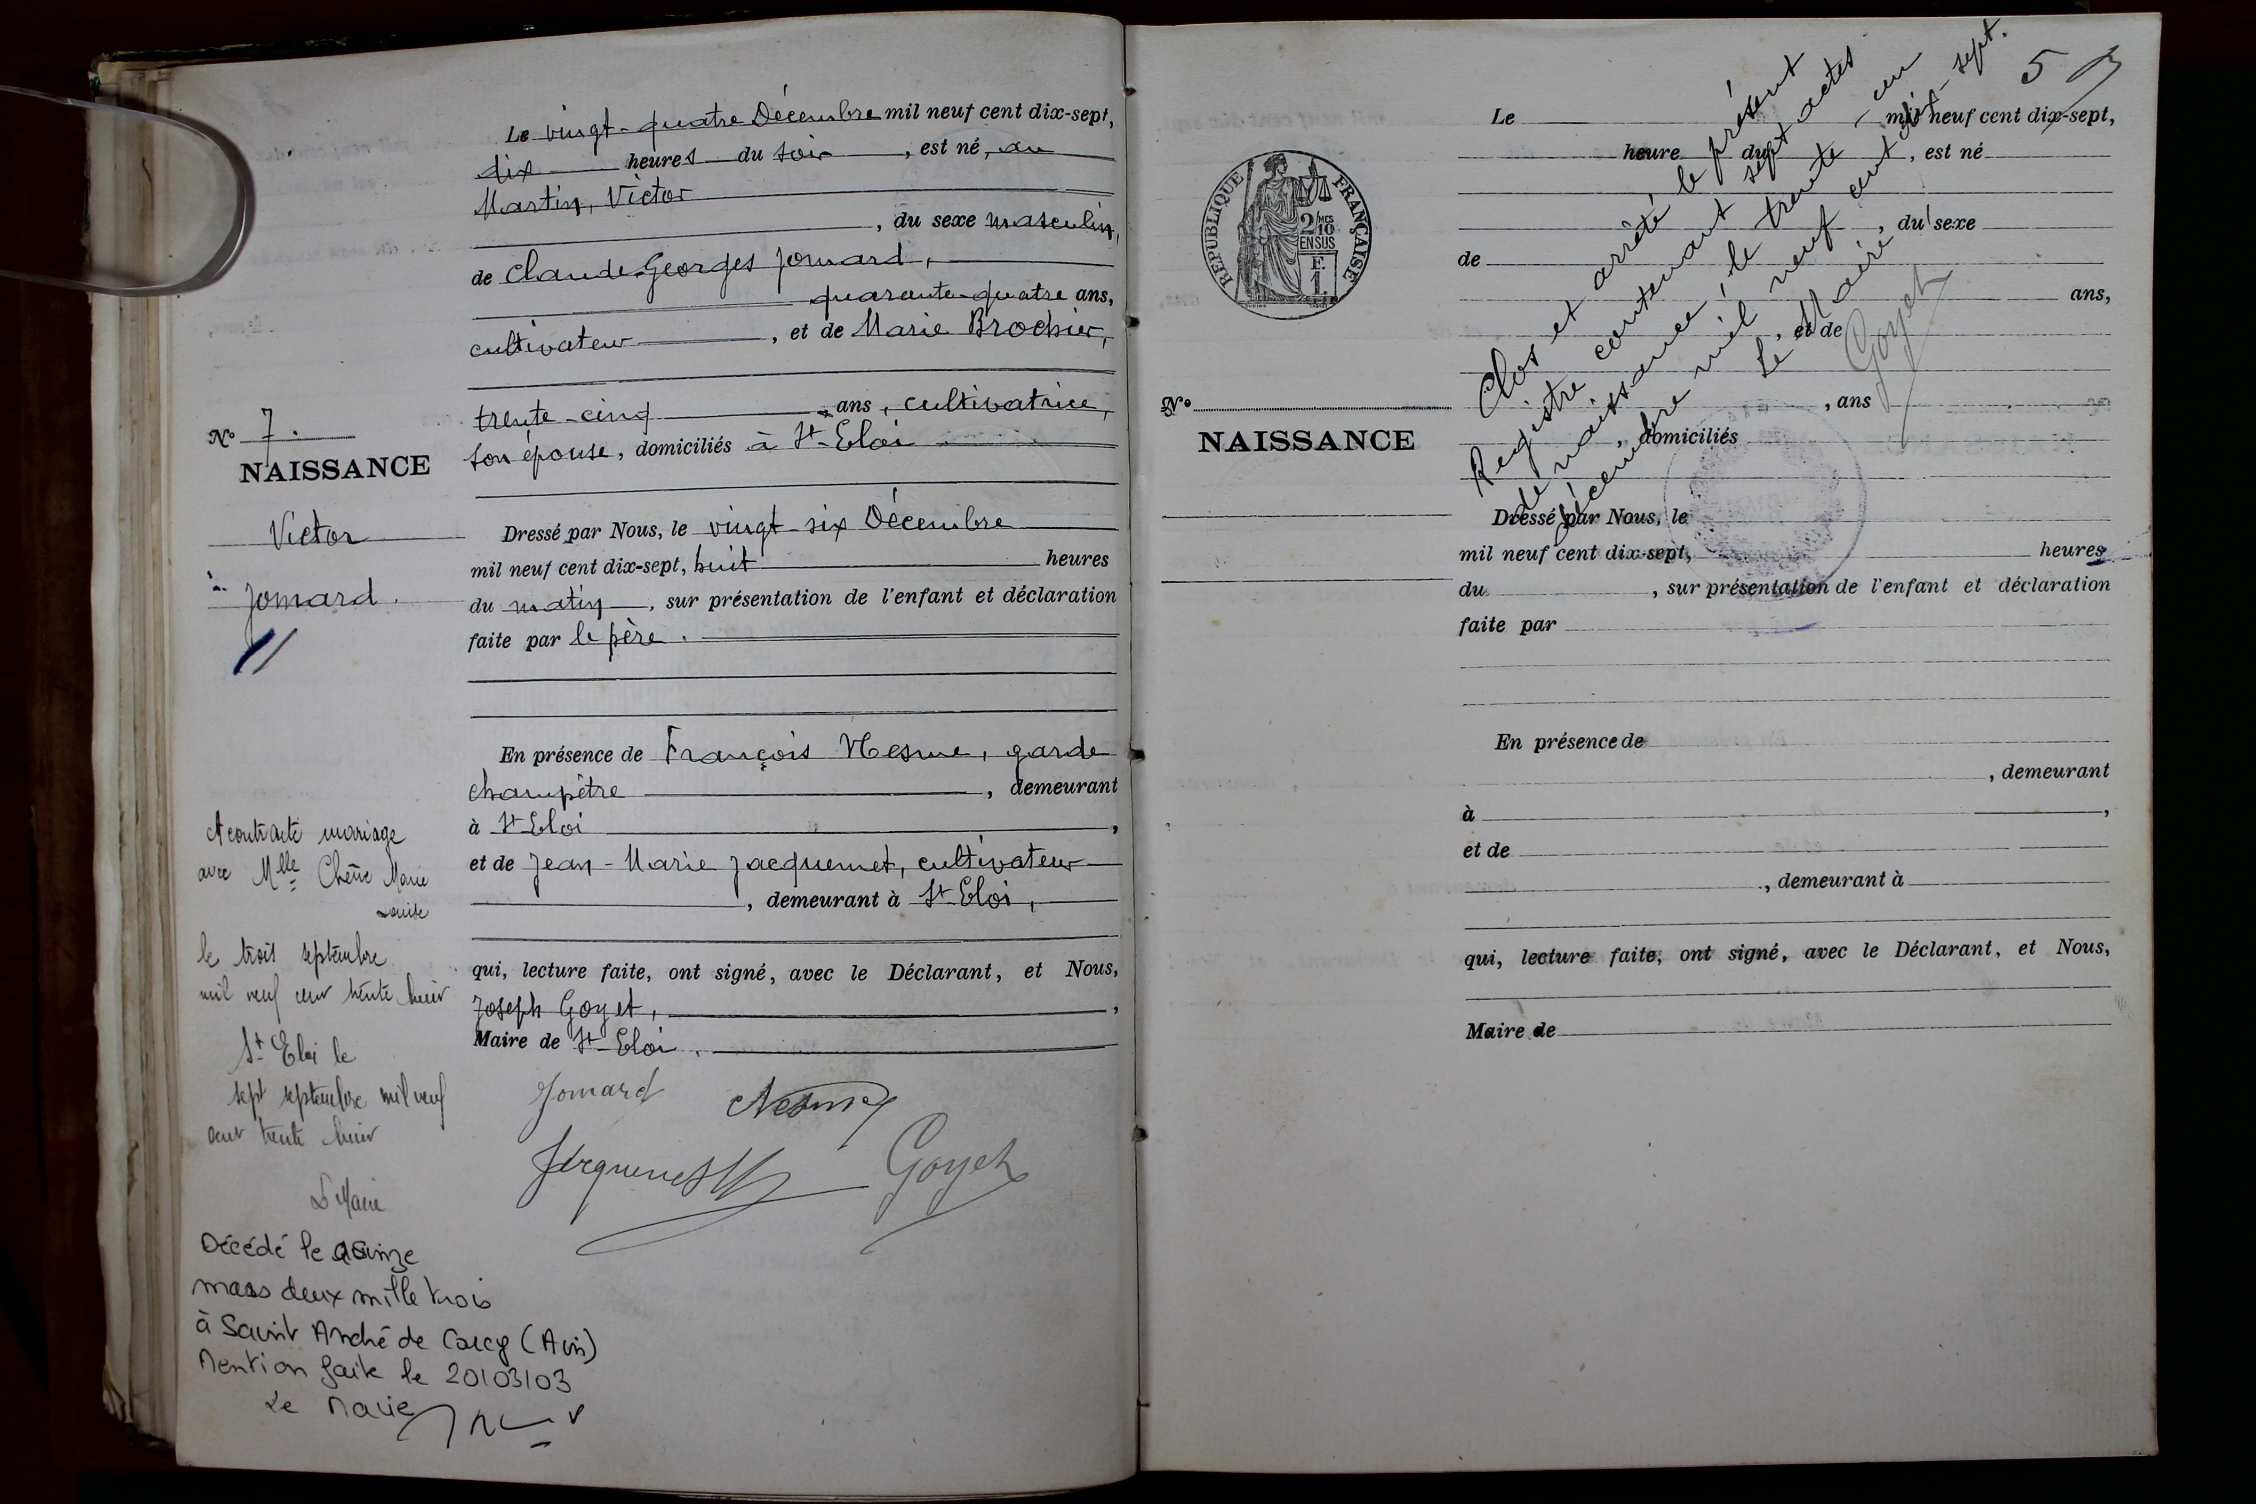 Le vingt-quatre Décembre mil neuf cent dix-sept,
dix heures du soir, est né, au
Martin, Victor
, du sexe masculin,
de Claude-Georges Jomard,
quarante-quatre ans,
cultivateur, et de Marie Brochier,
trente-cinq ans, cultivatrice,
son épouse, domiciliés à St-Eloi
Dressé par Nous, le vingt-six Décembre
mil neuf cent dix-sept, huit heures
du matin, sur présentation de l'enfant et déclaration
faite par le père.
En présence de François Nesme, garde
champêtre, demeurant
à St Eloi,
et de Jean-Marie Jacquemet, cultivateur
, demeurant à St-Eloi,
qui, lecture faite, ont signé, avec le Déclarant, et Nous,
Joseph Goyet,
Maire de St-Eloi.
Jomard Nesme
Jacquemet Goyet
No 7.
NAISSANCE
Victor
Jomard.
A contracté mariage
avec Mlle Chêne Marie
Louise
le trois septembre
mil neuf cent trente huit
St Eloi le
sept septembre mil neuf
cent trente huit
Le Maire
Décédé le quinze
mars deux mille trois
à Saint André de Corcy (Ain)
Mention faite le 20/03/03
Le Maire
5
Clos et arrêté le présent
Registre contenant sept actes
de naissance, le trente-un
Décembre mil neuf cent dix-sept.
Le Maire
Goyet
RÉPUBLIQUE FRANÇAISE
2/MES
10
EN SUS
F.
1.
No
NAISSANCE
Le mil neuf cent dix-sept,
heure du, est né
, du sexe
de
ans,
, et de
, ans
, domiciliés
Dressé par Nous, le
mil neuf cent dix-sept, heures
du, sur présentation de l'enfant et déclaration
faite par
En présence de
, demeurant
à,
et de
, demeurant à
qui, lecture faite, ont signé, avec le Déclarant, et Nous,
Maire de